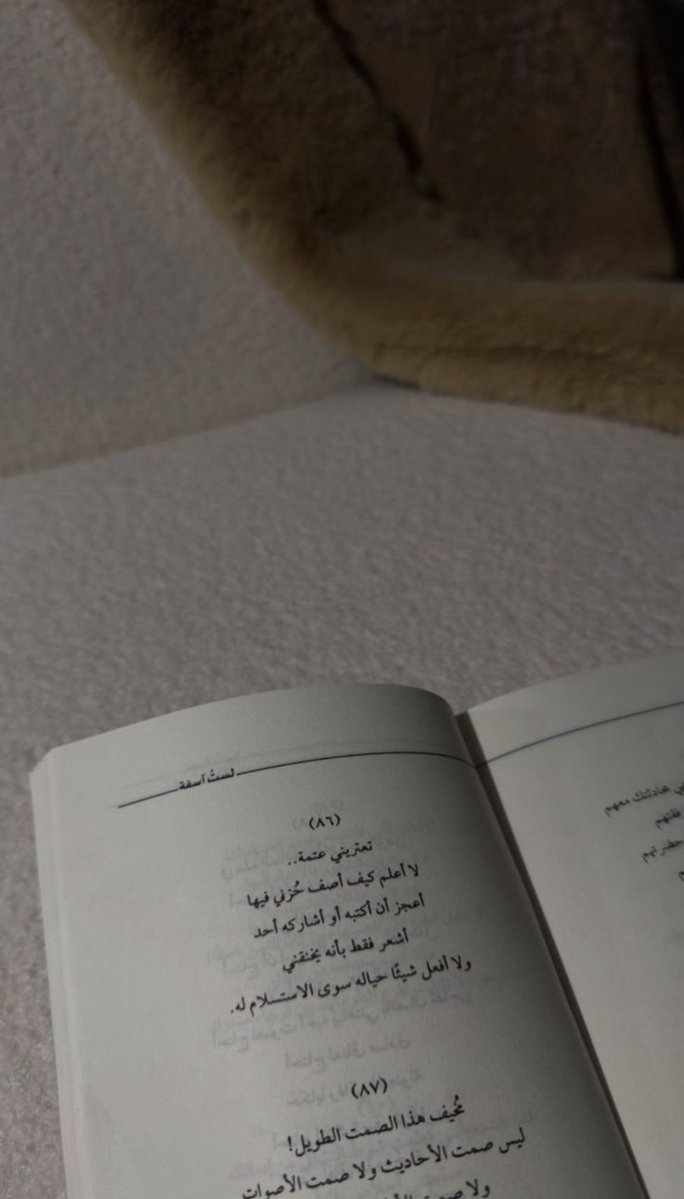 لستُ آسفة
(٨٦)
تعتريني عتمة..
لا أعلم كيف أصف حُزني فيها
أعجز أن أكتبه أو أشاركه أحد
أشعر فقط بأنه يخنقني
ولا أفعل شيئًا حياله سوى الاستسلام له.
(٨٧)
مُخيف هذا الصمت الطويل!
ليس صمت الأحاديث ولا صمت الأصوات
ولا صمت
معهم
حضرتهم